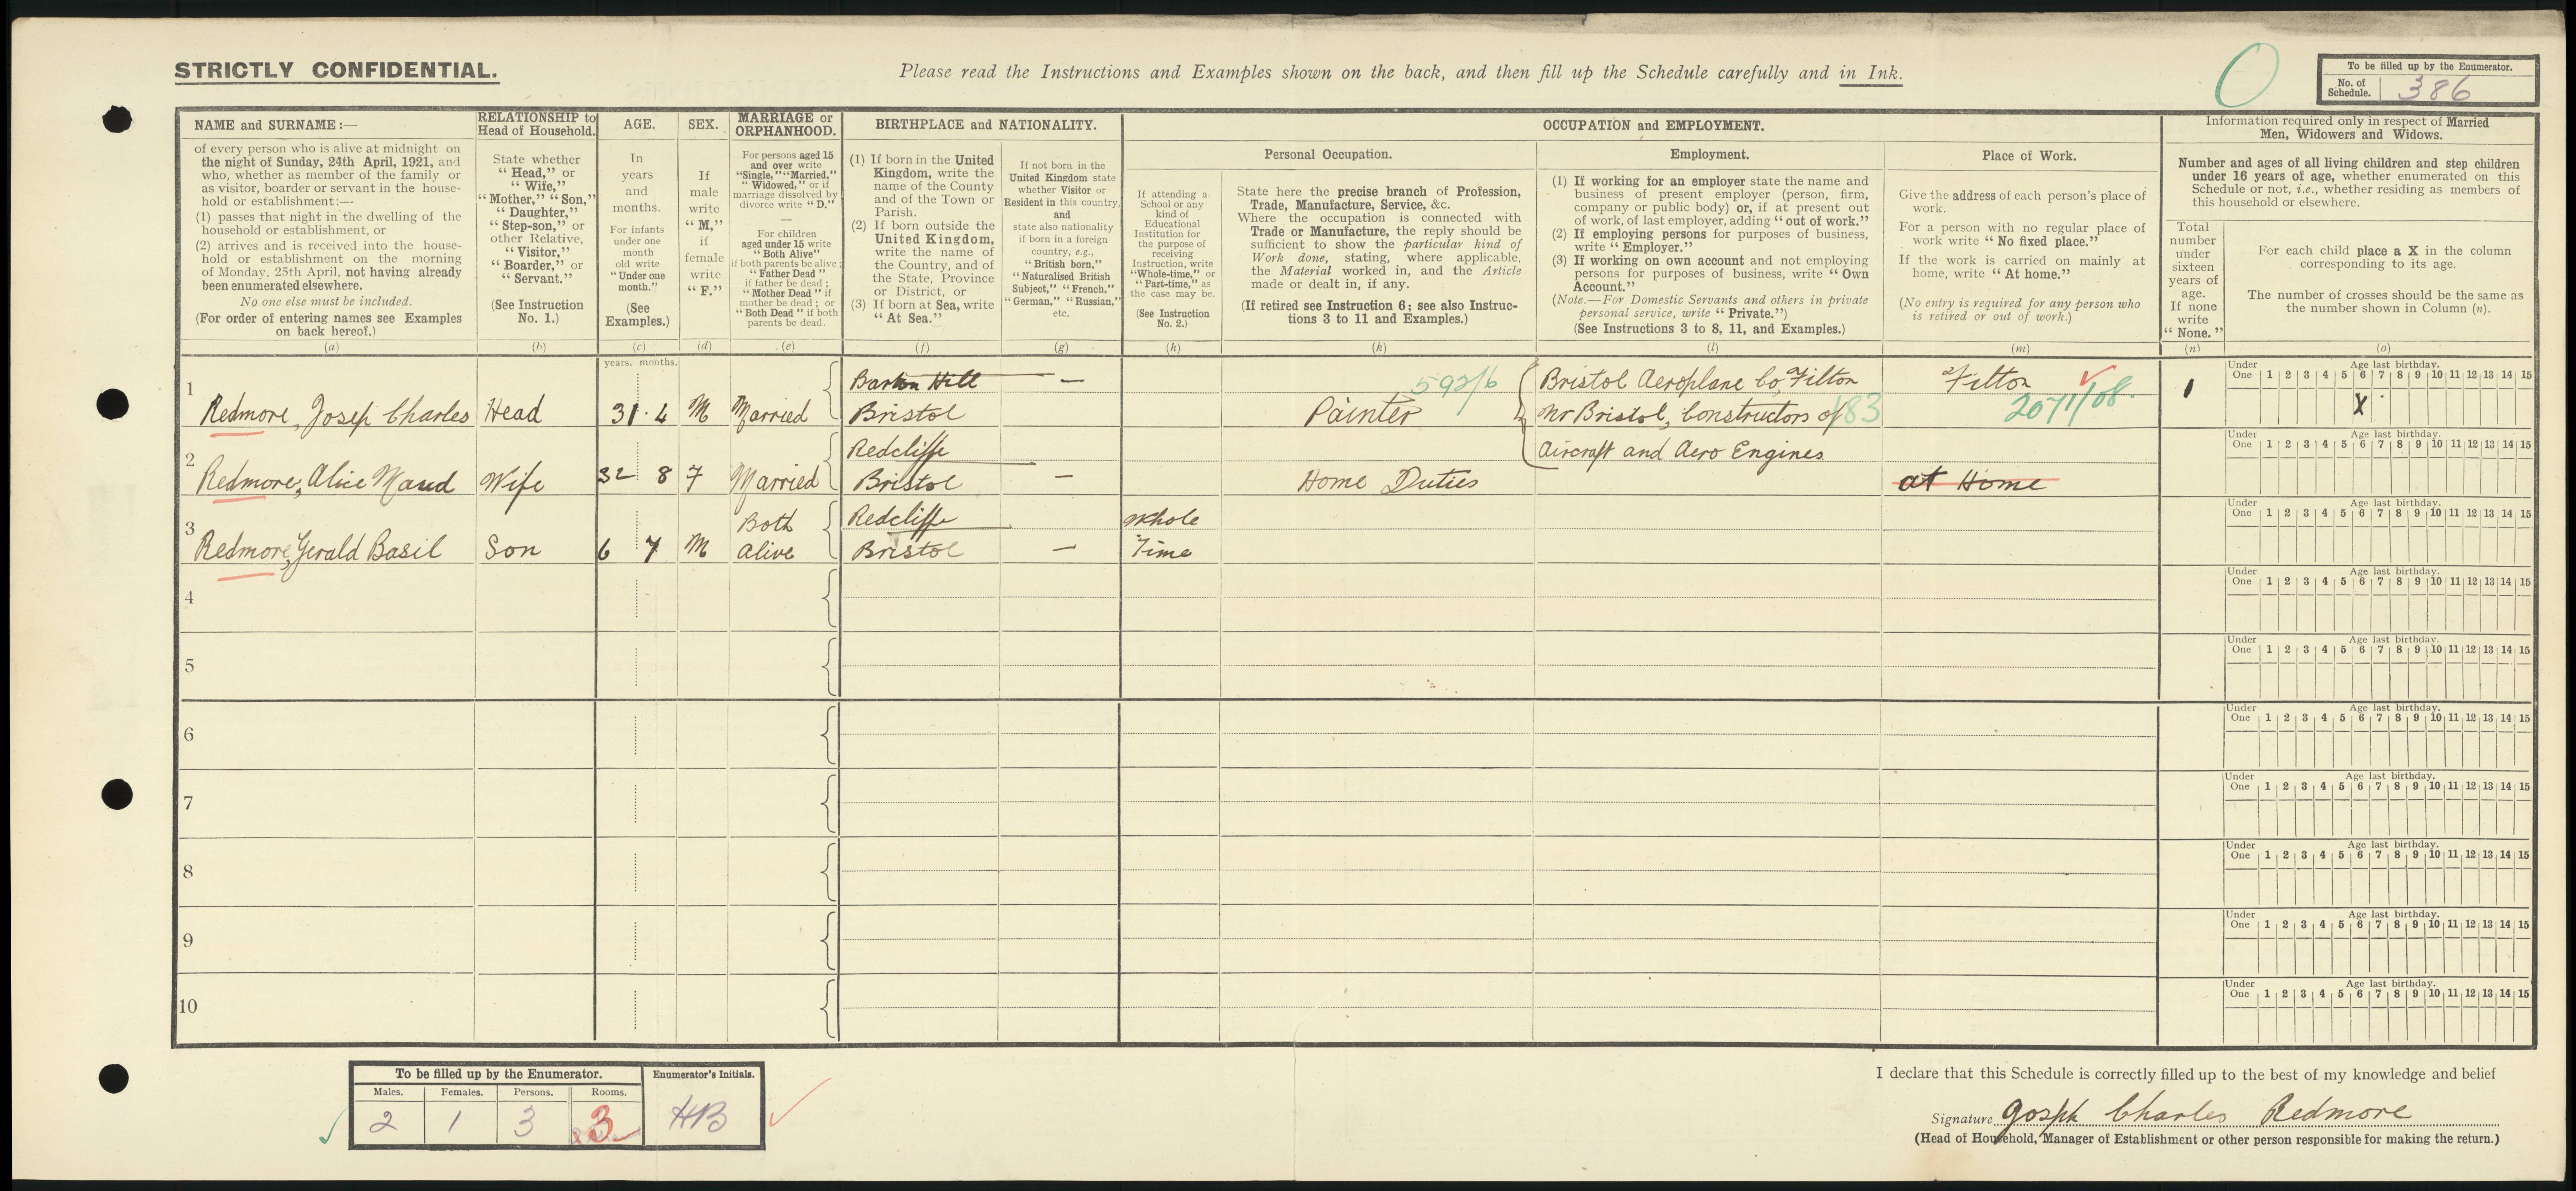 STRICTLY CONFIDENTIAL.
Please read the Instructions and Examples shown on the back, and then fill up the Schedule carefully and in Ink.
0
To be filled up by the Enumerator.
No. of Schedule. 386
NAME and SURNAME:—
of every person who is alive at midnight on
the night of Sunday, 24th April, 1921, and
who, whether as member of the family or
as visitor, boarder or servant in the house-
hold or establishment:—
(1) passes that night in the dwelling of the
household or establishment, or
(2) arrives and is received into the house-
hold or establishment on the morning
of Monday, 25th April, not having already
been enumerated elsewhere.
No one else must be included.
(For order of entering names see Examples
on back hereof.)
(a)
RELATIONSHIP to
Head of Household.
State whether
“Head,” or
“Wife,”
“Mother,” “Son,”
“Daughter,”
“Step-son,” or
other Relative,
“Visitor,”
“Boarder,” or
“Servant.”
(See Instruction
No. 1.)
(b)
AGE.
In
years
and
months.
For infants
under one
month
old write
“Under one
month.”
(See
Examples.)
(c)
SEX.
If
male
write
“M,”
if
female
write
“F.”
(d)
MARRIAGE or
ORPHANHOOD.
For persons aged 15
and over write
“Single,” “Married,”
“Widowed,” or if
marriage dissolved by
divorce write “D.”
—
For children
aged under 15 write
“Both Alive”
if both parents be alive;
“Father Dead”
if father be dead;
“Mother Dead” if
mother be dead; or
“Both Dead” if both
parents be dead.
(e)
BIRTHPLACE and NATIONALITY.
(1) If born in the United
Kingdom, write the
name of the County
and of the Town or
Parish.
(2) If born outside the
United Kingdom,
write the name of
the Country, and of
the State, Province
or District, or
(3) If born at Sea, write
“At Sea.”
(f)
If not born in the
United Kingdom state
whether Visitor or
Resident in this country,
and
state also nationality
if born in a foreign
country, e.g.,
“British born,”
“Naturalised British
Subject,” “French,”
“German,” “Russian,”
etc.
(g)
OCCUPATION and EMPLOYMENT.
Personal Occupation.
If attending a
School or any
kind of
Educational
Institution for
the purpose of
receiving
Instruction, write
“Whole-time,” or
“Part-time,” as
the case may be.
(See Instruction
No. 2.)
(h)
State here the precise branch of Profession,
Trade, Manufacture, Service, &c.
Where the occupation is connected with
Trade or Manufacture, the reply should be
sufficient to show the particular kind of
Work done, stating, where applicable,
the Material worked in, and the Article
made or dealt in, if any.
(If retired see Instruction 6; see also Instruc-
tions 3 to 11 and Examples.)
(k)
Employment.
(1) If working for an employer state the name and
business of present employer (person, firm,
company or public body) or, if at present out
of work, of last employer, adding “out of work.”
(2) If employing persons for purposes of business,
write “Employer.”
(3) If working on own account and not employing
persons for purposes of business, write “Own
Account.”
(Note.—For Domestic Servants and others in private
personal service, write “Private.”)
(See Instructions 3 to 8, 11, and Examples.)
(l)
Place of Work.
Give the address of each person's place of
work.
For a person with no regular place of
work write “No fixed place.”
If the work is carried on mainly at
home, write “At home.”
(No entry is required for any person who
is retired or out of work.)
(m)
Information required only in respect of Married
Men, Widowers and Widows.
Number and ages of all living children and step children
under 16 years of age, whether enumerated on this
Schedule or not, i.e., whether residing as members of
this household or elsewhere.
Total
number
under
sixteen
years of
age.
If none
write
“None.”
(n)
For each child place a X in the column
corresponding to its age.
The number of crosses should be the same as
the number shown in Column (n).
(o)
years. months.
1
Redmore, Josep Charles Head 31 4 M Married
Barton Hill —
Bristol
592/6
Painter
Bristol Aeroplane Co, Filton
Nr Bristol, Constructors of 183
Aircraft and Aero Engines
Filton
2071/08.
1
Under One Age last birthday. 1 2 3 4 5 6 7 8 9 10 11 12 13 14 15
X
2
Redmore, Alice Maud Wife 32 8 F Married
Redcliffe
Bristol —
Home Duties
at Home
Under One Age last birthday. 1 2 3 4 5 6 7 8 9 10 11 12 13 14 15
3
Redmore, Gerald Basil Son 6 7 M
Both
alive
Redcliffe
Bristol —
Whole
Time
Under One Age last birthday. 1 2 3 4 5 6 7 8 9 10 11 12 13 14 15
4
Under One Age last birthday. 1 2 3 4 5 6 7 8 9 10 11 12 13 14 15
5
Under One Age last birthday. 1 2 3 4 5 6 7 8 9 10 11 12 13 14 15
6
Under One Age last birthday. 1 2 3 4 5 6 7 8 9 10 11 12 13 14 15
7
Under One Age last birthday. 1 2 3 4 5 6 7 8 9 10 11 12 13 14 15
8
Under One Age last birthday. 1 2 3 4 5 6 7 8 9 10 11 12 13 14 15
9
Under One Age last birthday. 1 2 3 4 5 6 7 8 9 10 11 12 13 14 15
10
Under One Age last birthday. 1 2 3 4 5 6 7 8 9 10 11 12 13 14 15
To be filled up by the Enumerator.
Enumerator's Initials.
Males. Females. Persons. Rooms.
2 1 3 3 HB
I declare that this Schedule is correctly filled up to the best of my knowledge and belief
Signature Josph Charles Redmore
(Head of Household, Manager of Establishment or other person responsible for making the return.)